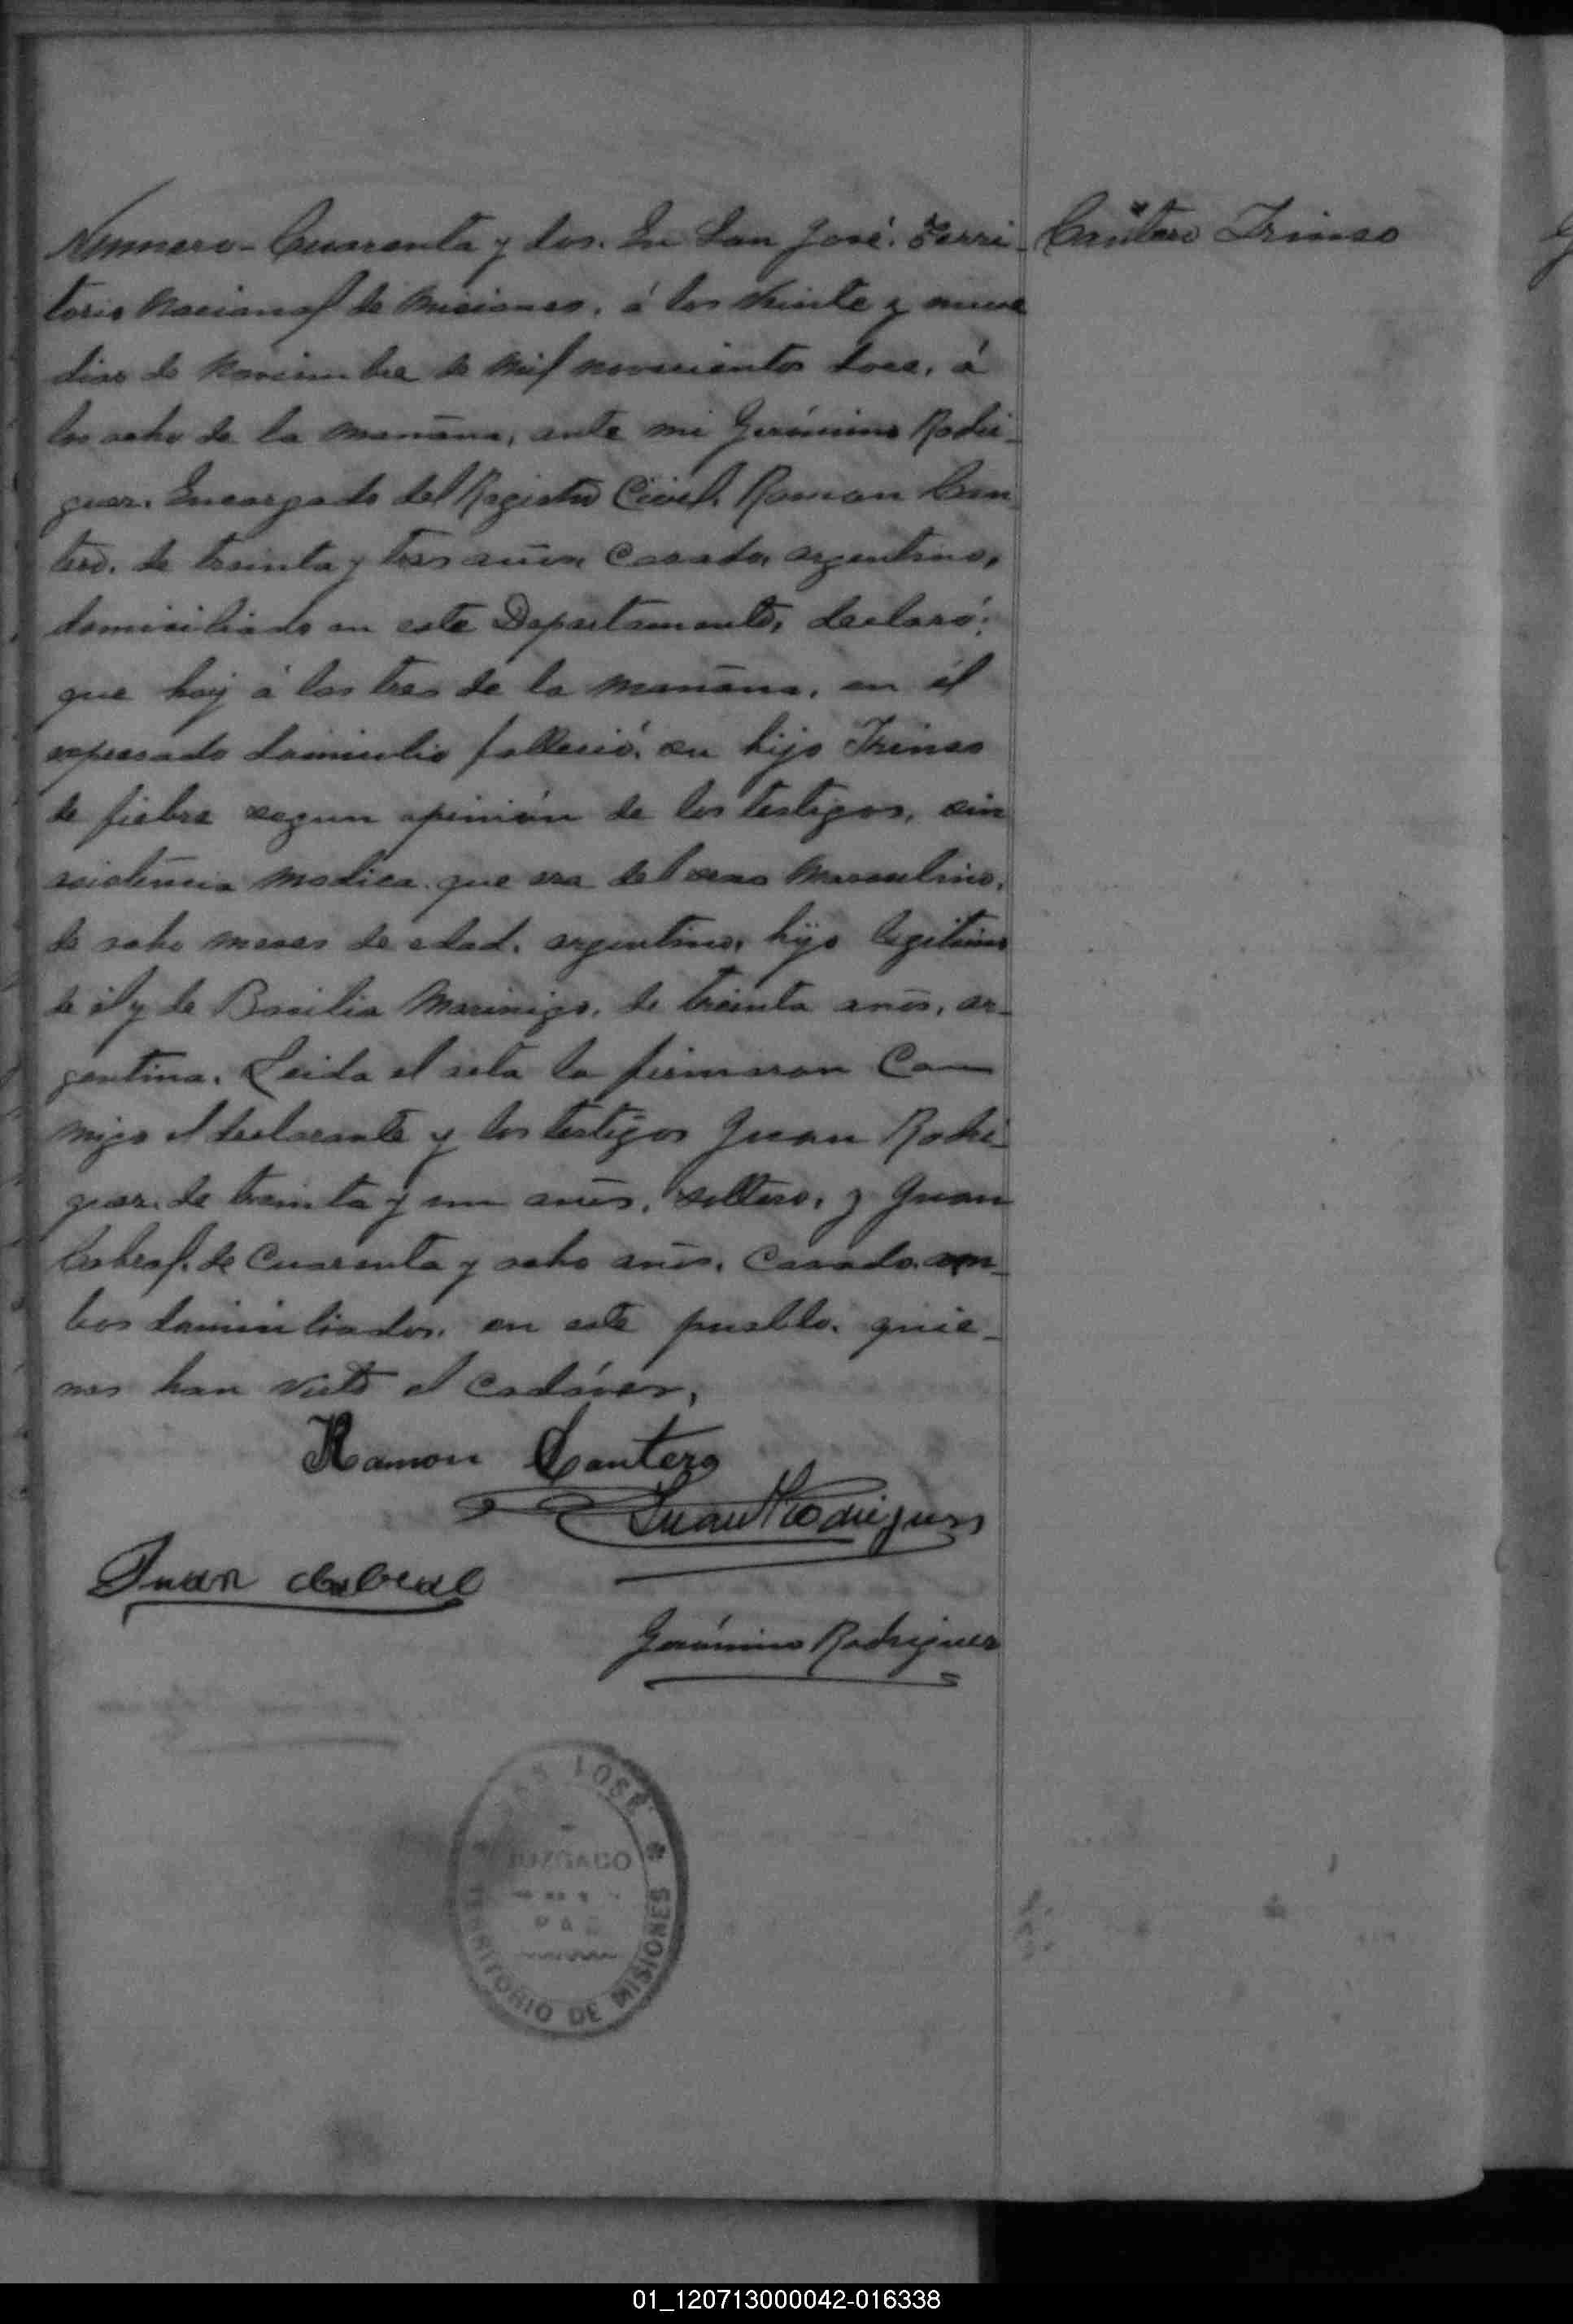 Numero - Cuarenta y dos. En San José. Terri-
Cantero Irineo
torio Nacional de Misiones, á los Veinte y nueve
dias de Noviembre de Mil novecientos doce, á
las ocho de la mañana, ante mi Gerónimo Rodri-
guez. Encargado del Registro Civil, Ramon Can
tero, de treinta y tres años, Casado, argentino,
domiciliado en este Departamento, declaró:
que hoy á las tres de la mañana, en el
expresado domicilio falleció, su hijo Irineo
de fiebre segun opinión de los testigos, sin
asistencia medica, que era del sexo Masculino,
de ocho meses de edad, argentino, hijo legitimo
de él y de Basilia Marinigo, de treinta años, ar-
gentina. Leida el acta la firmaron Con
migo el declarante y los testigos Juan Rodri-
guez, de treinta y un años, soltero, y Juan
Cabral, de Cuarenta y ocho años, Casado, am-
bos domiciliados, en este pueblo, quie-
nes han visto el cadáver,
Ramon Cantero
Juan Rodriguez
Juan Cabral
Gerónimo Rodriguez
SAN JOSÉ
JUZGADO
DE
PAZ
TERRITORIO DE MISIONES
01_120713000042-016338